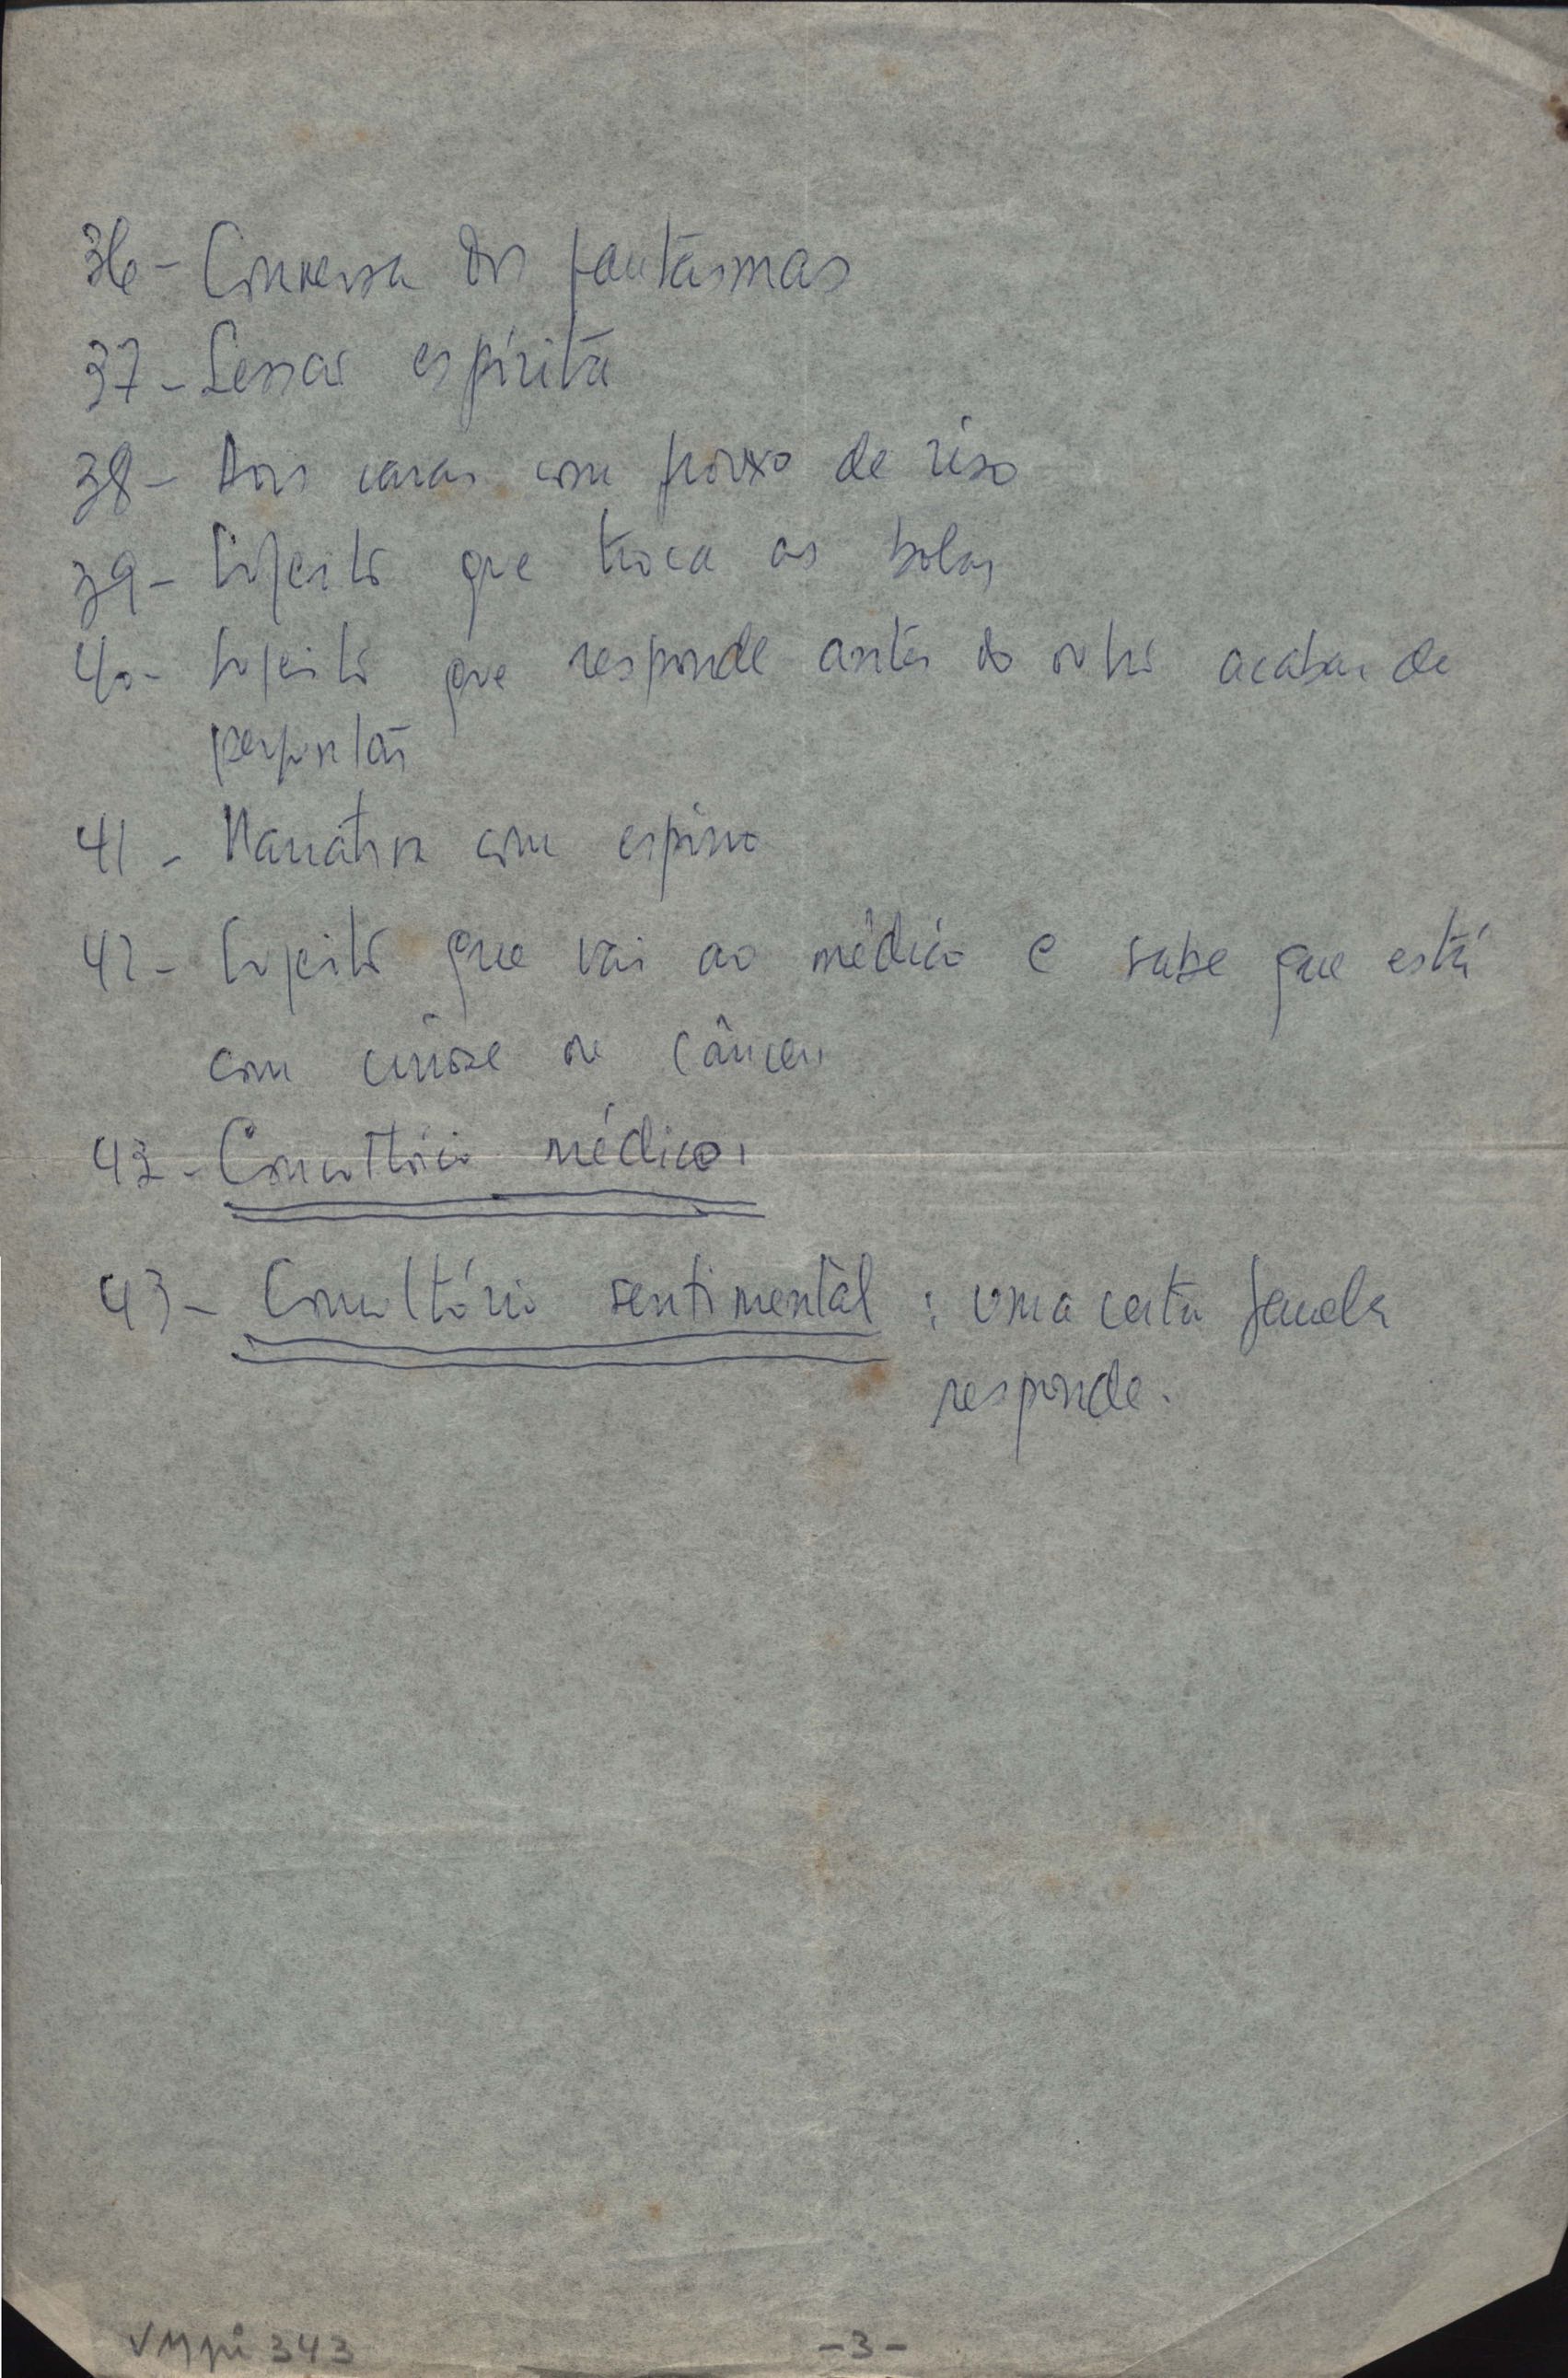 36- Conversa dos fantasmas
37- Sessão espírita
38- Dois caras com frouxo de riso
39- Sujeito que troca as bolas
40- Sujeito que responde antes do outro acabar de
perguntar
41- Narrativa com espirro
42- Sujeito que vai ao médico e sabe que está
com cirrose ou câncer
42- Consultório médico
43- Consultório sentimental : uma certa
responde.
VMpi 343
-3-